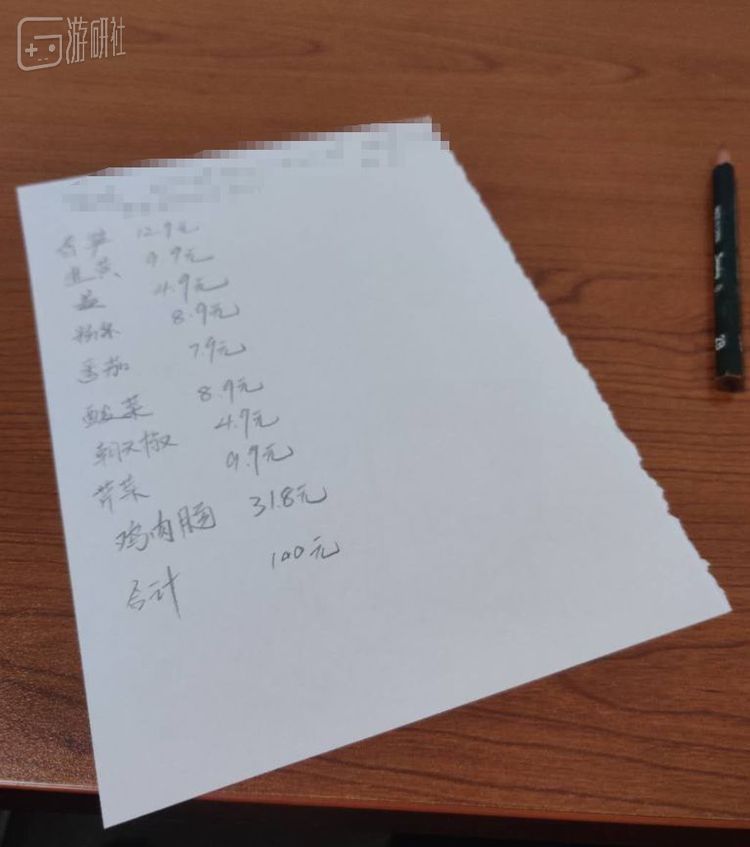 游研社
12.9元
韭黄 9.9元
姜 4.9元
粉条 8.9元
番茄 7.9元
酸菜 8.9元
朝天椒 4.9元
芹菜 9.9元
鸡肉肠 31.8元
合计 100元